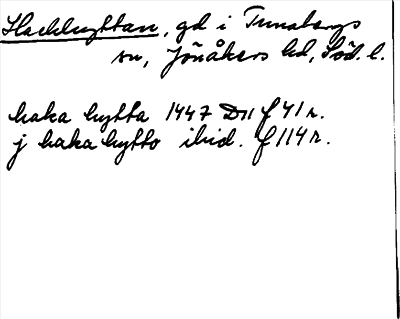 Hackhyttan, gd i Tunabergs
sn, Jönåkers hd, Söd. l.
haka hytta 1447 D11 f 41 r.
j haka hytto ibid. f 114 r.